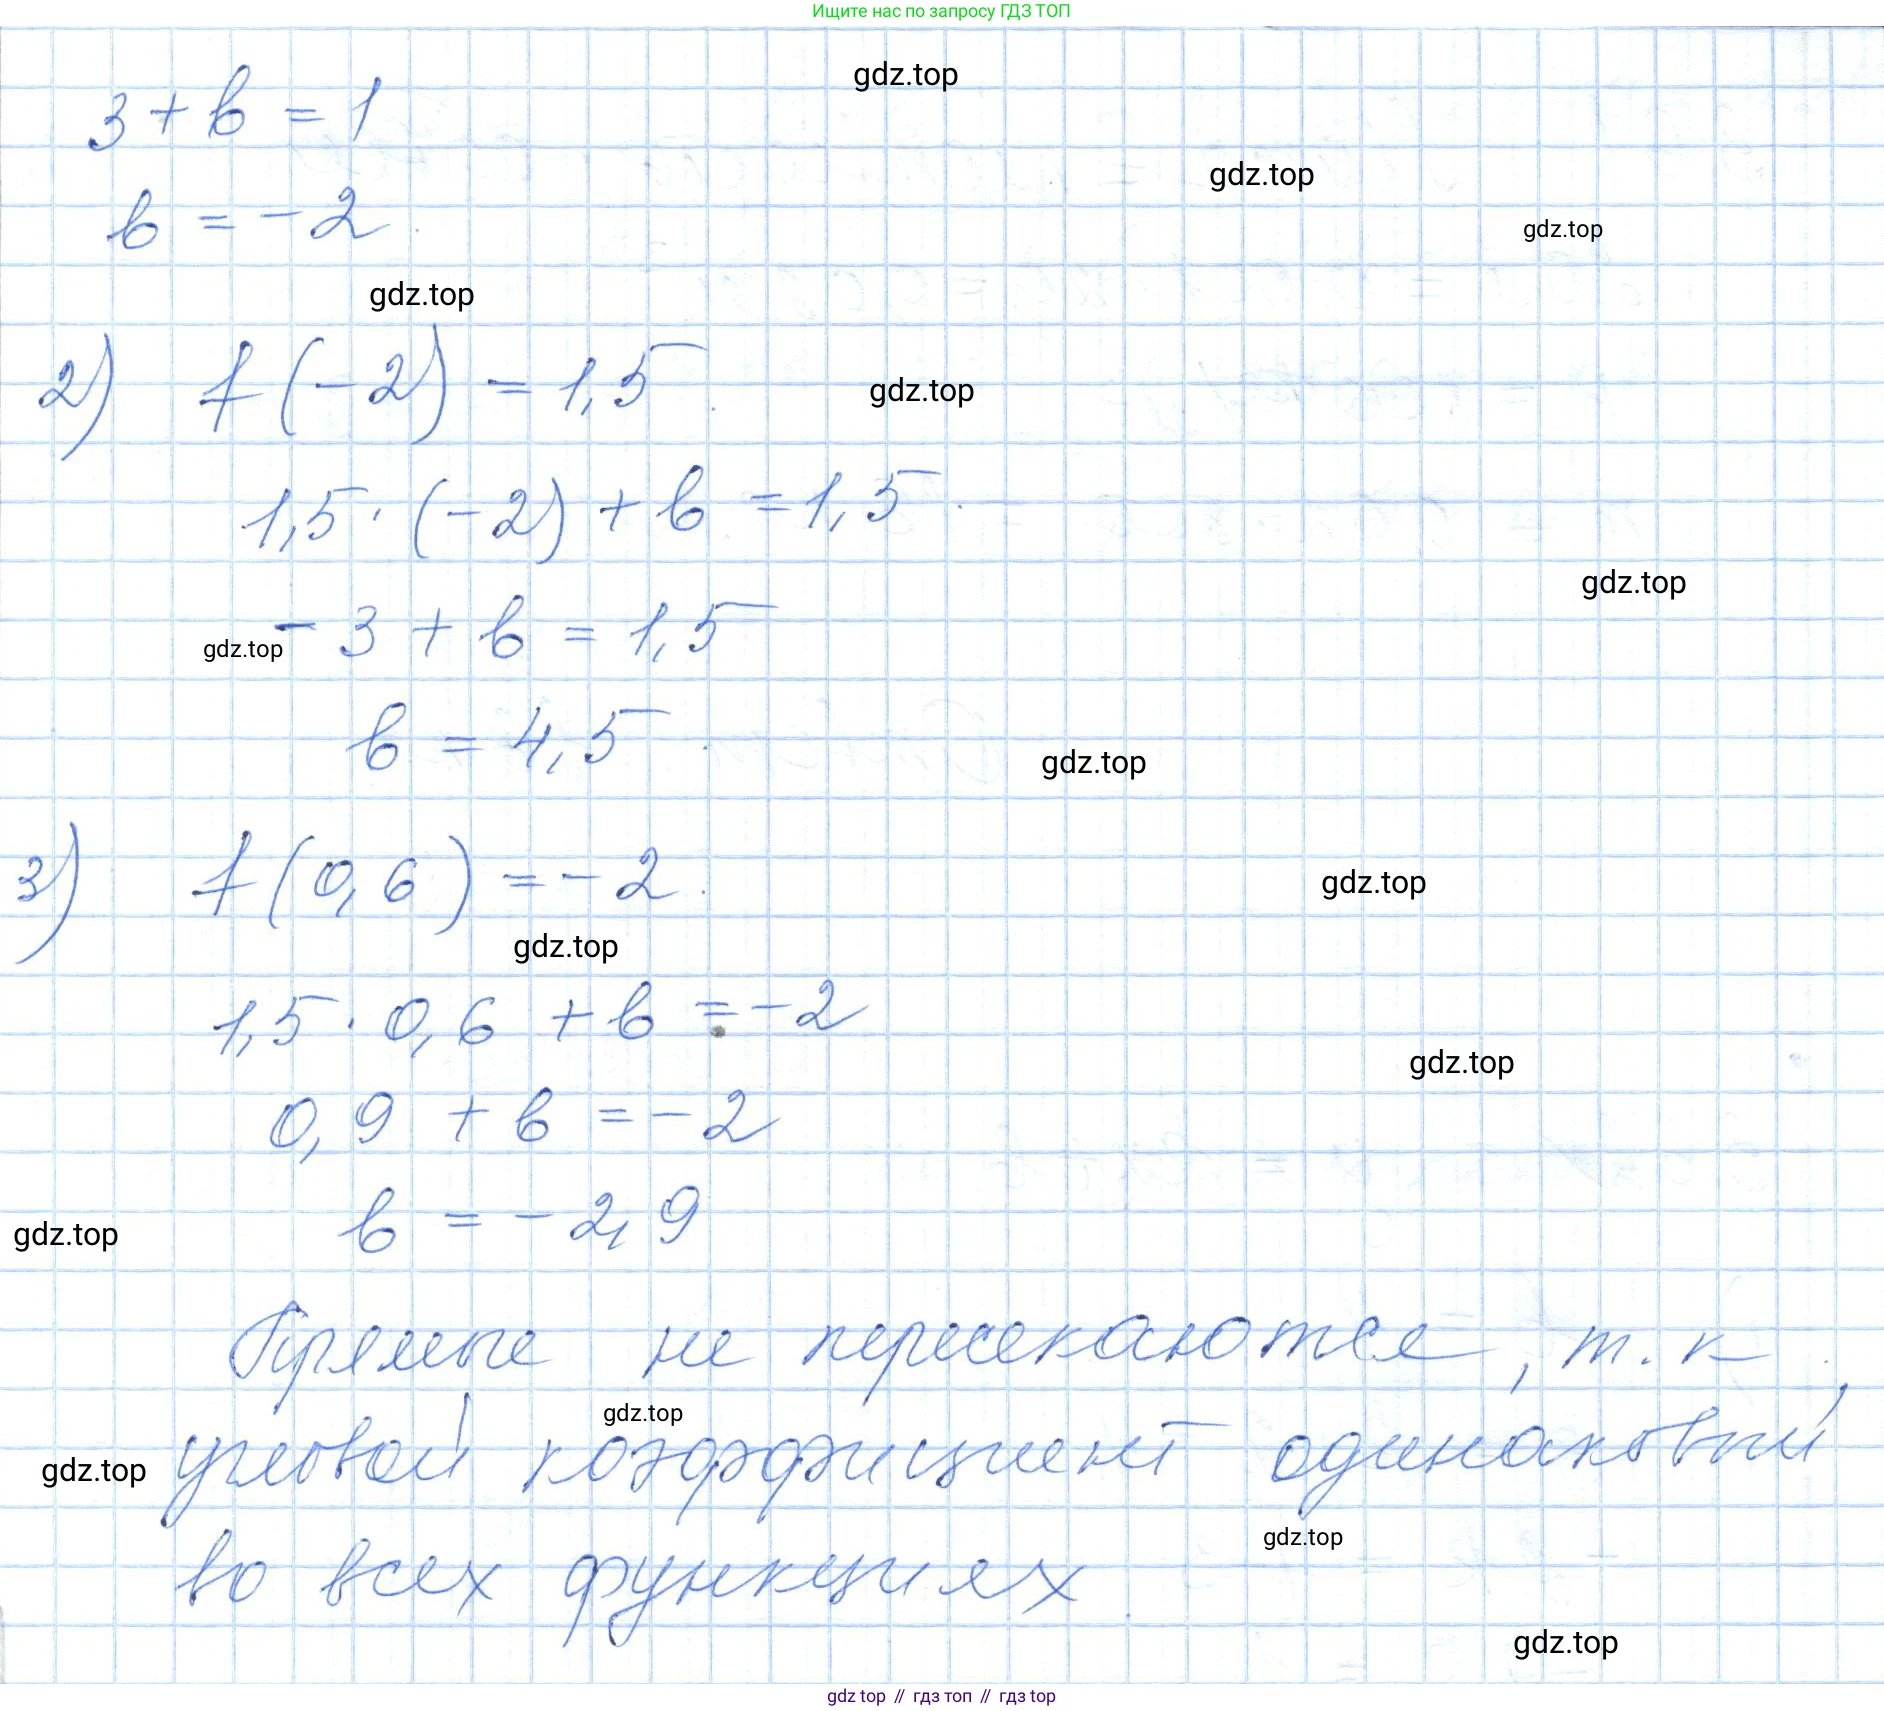 Ищите нас по запросу ГДЗ ТОП
gdz.top
3 + в = 1
gdz.top
в = - 2
gdz.top
gdz.top
2) f(-2) = 1,5
gdz.top
1,5 · (-2) + в = 1,5
gdz.top
- 3 + в = 1,5
gdz.top
в = 4,5
gdz.top
3) f(0,6) = - 2
gdz.top
gdz.top
1,5 · 0,6 + в = - 2
gdz.top
0,9 + в = - 2
в = - 2,9
gdz.top
Прямые не пересекаются, т.к
gdz.top
угловой коэффициент одинаковый,
gdz.top
gdz.top
во всех функциях
gdz.top
gdz top // гдз топ // гдз top